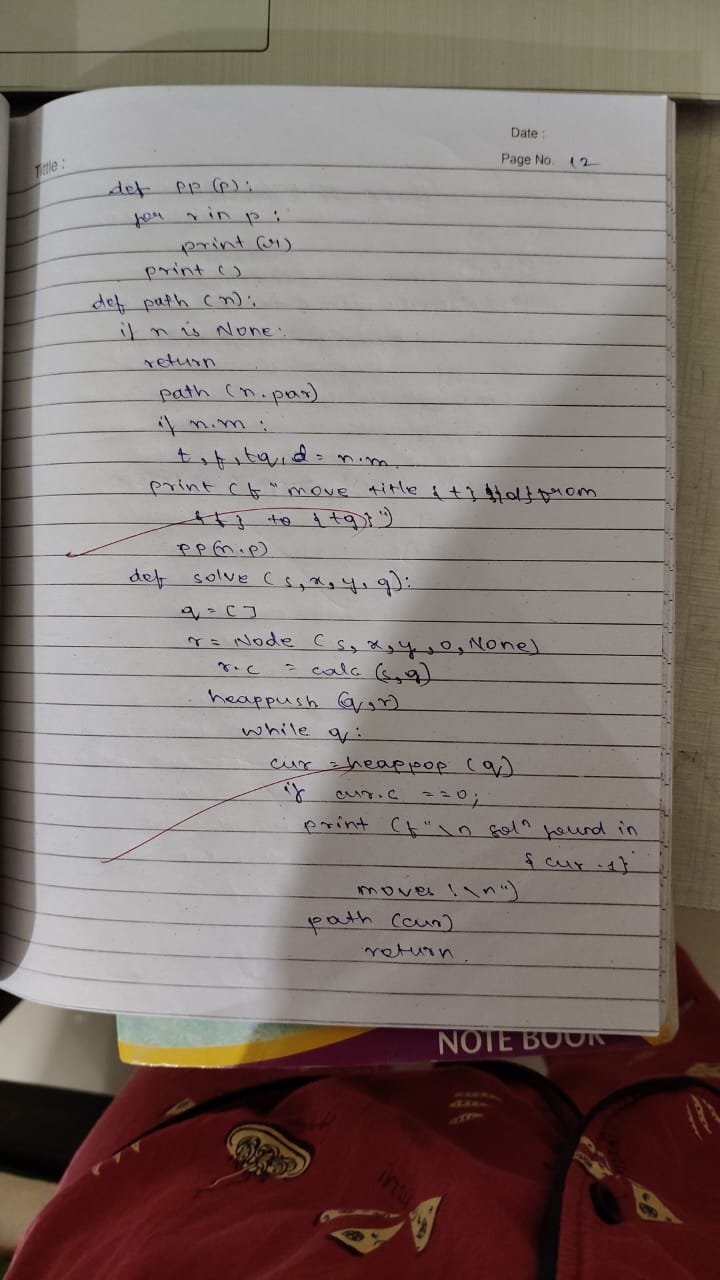 Date :
Tittle :
Page No. 12
def pp (p):
for r in p :
print (r)
print ()
def path (n):
if n is None:
return
path (n.par)
if n.m :
t, f, tg, d = n.m.
print (f "move title {t} {d} from
{f} to {tg}")
pp(n.p)
def solve (s, x, y, g):
q = []
r = Node (s, x, y, 0, None)
r.c = calc (s, g)
heappush (q, r)
while q:
cur = heappop (q)
if cur.c == 0;
print (f"\n solⁿ found in
{cur.l}
moves !\n")
path (cur)
return.
NOTE BOOK